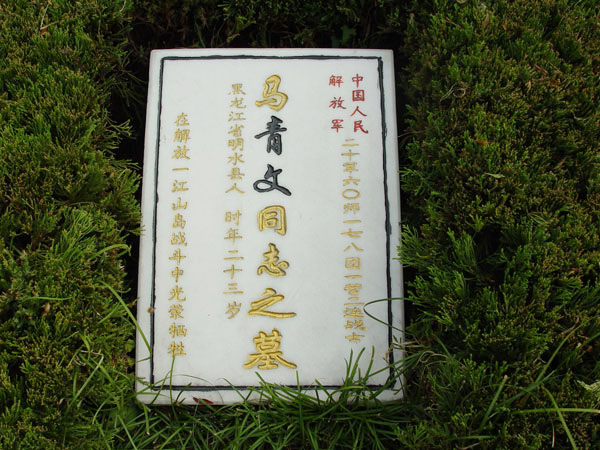 中国人民
解放军
二十军六〇师一七八团一营二连战士
马青文同志之墓
黑龙江省明水县人 时年二十三岁
在解放一江山岛战斗中光荣牺牲